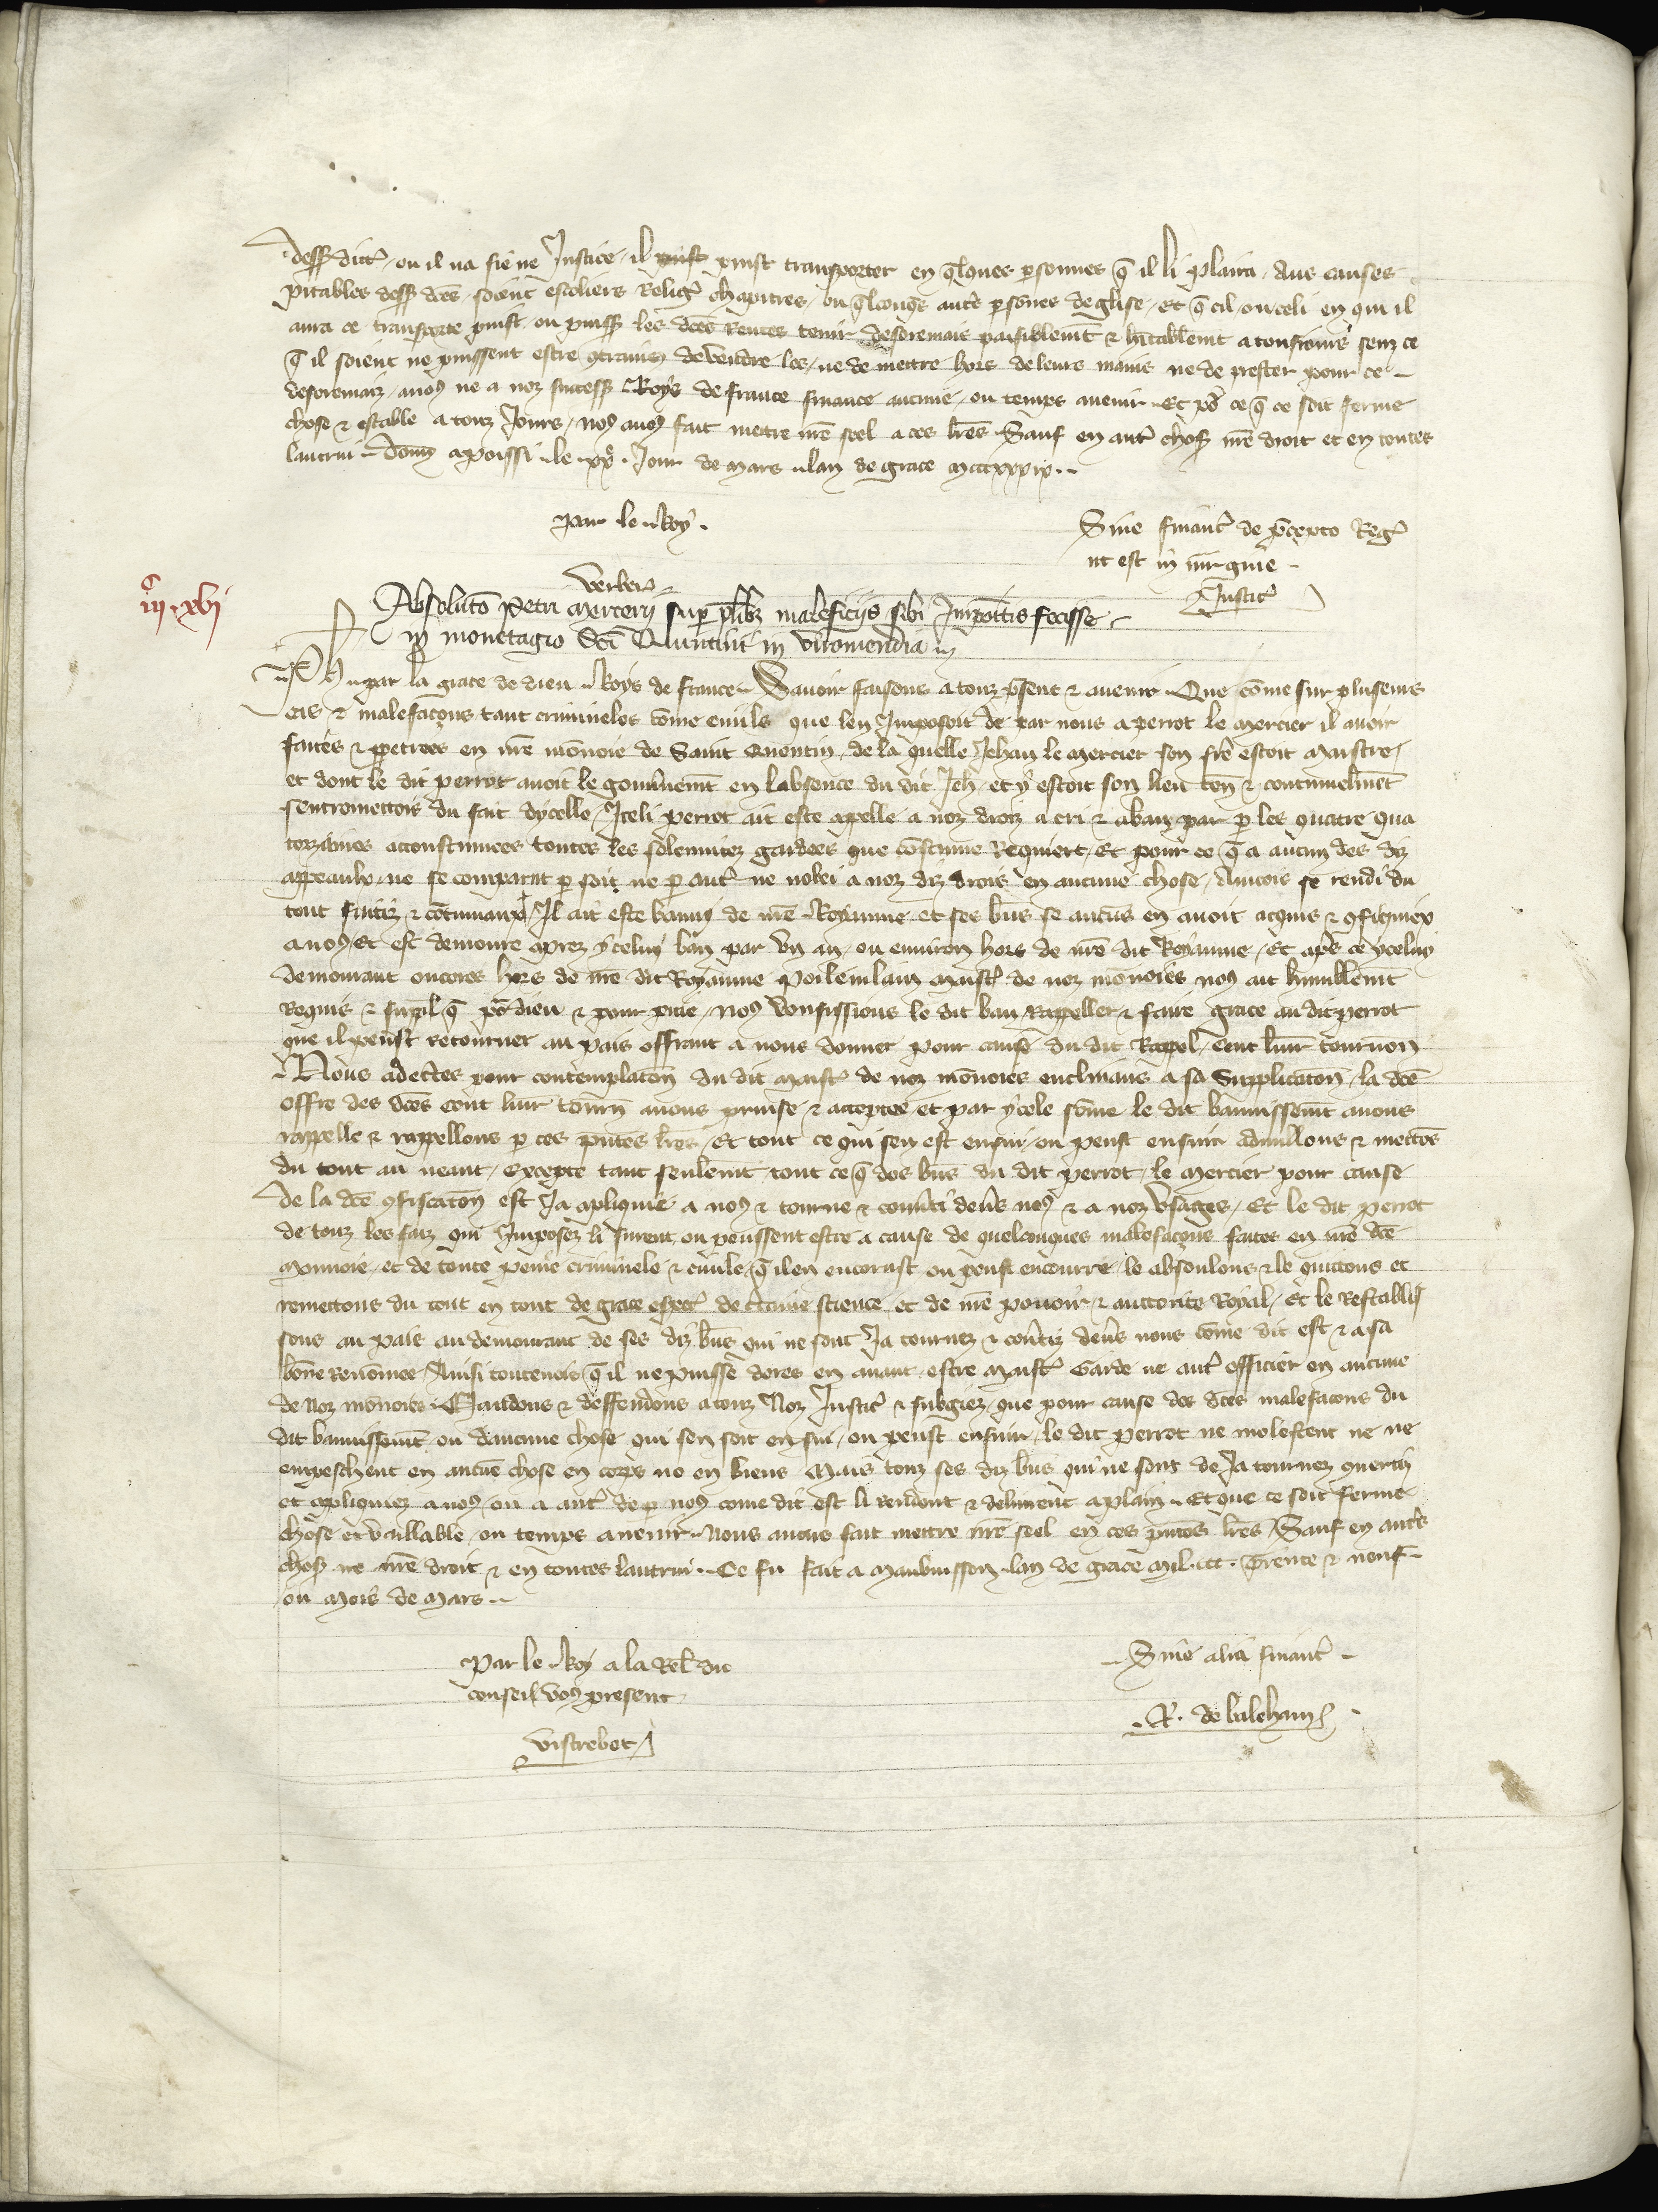 dessꝰ dicts ou il na siene Justice il puist transporter en qlques psonnes q̃ il li plaira Aus causes
pitables dessꝰ dc̃es soient escoliers Religꝰ chapitres ou qlconqs autrs psones deglise Et q̃ cil ou celi en qui il
aura ce transporte puist ou puissẽ les dc̃es Rentes tenir desoremais paisiblemt̃ & hitablemt a tousiours senz ce
q̃ il soient ne puissent estre contrains de vendre les ne de mettre hors de leurs mains ne de prester pour ce
desoremais a noꝰ ne a noz success Roys de france finance aucune ou temps auenir Et pr ce q̃ ce soit ferme
chose & estable a touz Jours noꝰ auoꝰ fait mettre nr̃e seel a ces lr̃es Sauf en autrs choses nr̃e droit et en toutes
lautrui Donne a poissi le xxe Jour de Mars lan de grace mcccxxxix
par le Roy
Sine financ̃ de p̃cepto Regꝭ
ut est in margine
Justicꝭ
verberꝭ
iijc xvj
Absolutõ Petri Mercerij sup plibꝫ maleficijs sibi Impoitis fecisse
in monetagio Sc̃i Quintini in viromendia
Ph par la grace de dieu Roys de france Sauoir faisons a touz p̃sent & auenir Que cõme sur pluseurs
cas & malefacons tant crimineles cõme ciuils que len Imposoit de par nous a perrot le Mercier il auoir
faites & ppetrees en nr̃e mõnoie de Saint Quentin de la quelle Jehan le Mercier son frẽ estoit Maistre
et dont le dit perrot auoit le gouuernemt̃ en labsence du dit Jeh et y estoit son lieu ten̄ & continuelmet̃
sentremettoit du fait dycelle Jceli perrot ait este apelle a noz droiz a cri & a ban par p les quatre qua
torzaines acoustumees toutes les solemnitez gardees que coustume Requiert Et pour ce q̃ a aucun des diz
appeauls ne se comparut p soit ne p autꝭ ne nobei a noz diz drois en aucune chose Aincois se rendi du
tout fuitiz & cõtumaux Il ait este banny de nr̃e Royaume et ses biẽs se aucũs en auoit acquis & cõfisquiez
a noꝰ Et est demoure aprez yceluy ban par vn an ou enuiron hors de nr̃e dit Royaume Et apṝs ce yceluy
demourant encores hors de nr̃e dit Royaume Poileuilain Maistꝭ de noz mõnoies noꝰ ait humblemt̃
Requis & suppl q̃ pr dieu & pour pitie noꝰ vousissions le dit ban Rappeller & faire grace au dit perrot
que il peust retourner au pais offrant a nous donner pour cause du dit Rapel Cent liur tournon
Nous adecertes pour contemplacion du dit Maistꝭ de noz mõnoies enclinans a sa Supplicacon la dc̃e
offre des dc̃es cent liur tourn̄ auons prinse & acceptee et par ycele sõme le dit bannissemt̃ auons
rappelle & rappellons p ces p̃ntes lr̃es Et tout ce qui sen est ensui ou peust ensuir adnullons & mettõs
du tout au neant Excepte tant seulemt̃ tout ce q̃ des biẽs du dit perrot le Mercier pour cause
de la dc̃e cõfiscacon est Ja apliquie a noꝰ & tourne & conuti deũs noꝰ & a noz vsages Et le dit perrot
de touz les faiz qui Imposez li furent ou peussent estre a cause de quelconques malefacons faites en nr̃e dc̃e
Monnoie et de toute peine criminele & ciuile q̃ il en encorust ou peust encourre le absoulons & le quittons et
remettons du tout en tout de grace especꝭ de certaine science et de nr̃e pouoir & auctorite Royal Et le Restablis
sons au pais au demourant de ses diz biẽs qui ne sont Ja tournez & conũtiz deũs nous cõme dit est & a sa
bõne Renõmee Ainsi toutevois q̃ il ne puisse dores en auant estre Maistꝭ Garde ne autꝭ officier en aucune
de Noz mõnoies Mandons & deffendons a touz Noz Justicꝭ & subgiez que pour cause des dc̃es malefacons du
dit bannissemt̃ ou daucune chose qui sen soit ensui ou peust ensuir le dit perrot ne molestent ne ne
empeschent en aucũe chose en corps ne en biens Mais touz ses diz biẽs qui ne sont deJa tournez conũtis
et apliquiez a noꝰ ou a autꝭ de p noꝰ come dit est li rendent & deliurent a plain Et que ce soit ferme
chose et vaillable ou temps a uenir Nous auons fait mettre nr̃e seel en ces p̃ntes lr̃es Sauf en autrs
choses nr̃e droit & en toutes lautrui Ce fu fait a Maubuisson lan de grace mil ccc trente & neuf
ou mois de Mars
Par le Roy a la Rel du
conseil voꝰ present
vistrebet
Sine alia financꝭ
R. de balehan